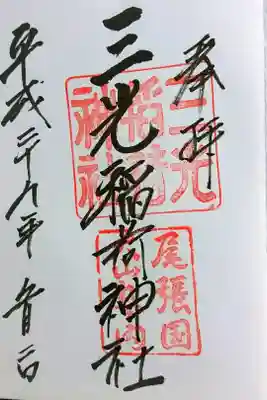 奉拝
三光
稲荷
神社
三光稲荷神社
尾張国
平成二十九年